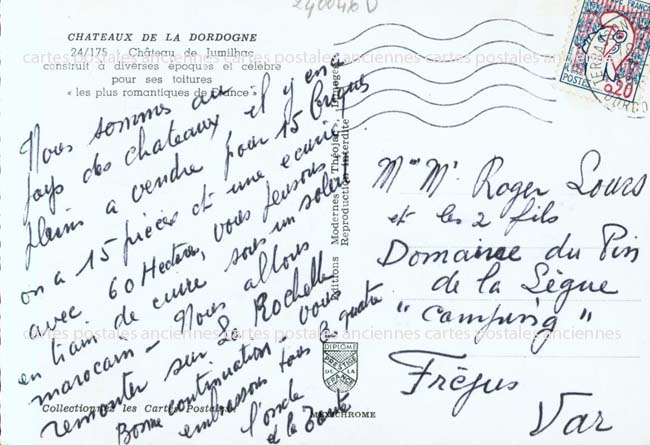 CHATEAUX DE LA DORDOGNE
24/175 Château de Jumilhac
construit à diverses époques et célèbre
pour ses toitures
« les plus romantiques de France »
Nous sommes au
pays des chateaux il y en a
pleins a vendre pour 15 briques
on a 15 pièces et une ecurie
avec 60 Hectares, vous pensons
en train de cuire sous un soleil
marocain - Nous allons
remonter sur La Rochelle
Bonne continuation vous
embrassons tous les quatre
l'oncle
et la Tante
Editions Modernes « Théojac », Limoges
Reproduction interdite
Collectionnez les Cartes Postales
MEXICHROME
DIPLOME
PRESTIGE
DE LA
FRANCE
2400416 D
FRANÇAISE
POSTES
0,20
Mme Mr Roger Lours
et les 2 fils
Domaine du Pin
de la Lègue
"Camping"
Fréjus
Var
cartes postales anciennes cartes postales anciennes cartes postales anciennes
cartes postales anciennes cartes postales anciennes cartes postales anciennes